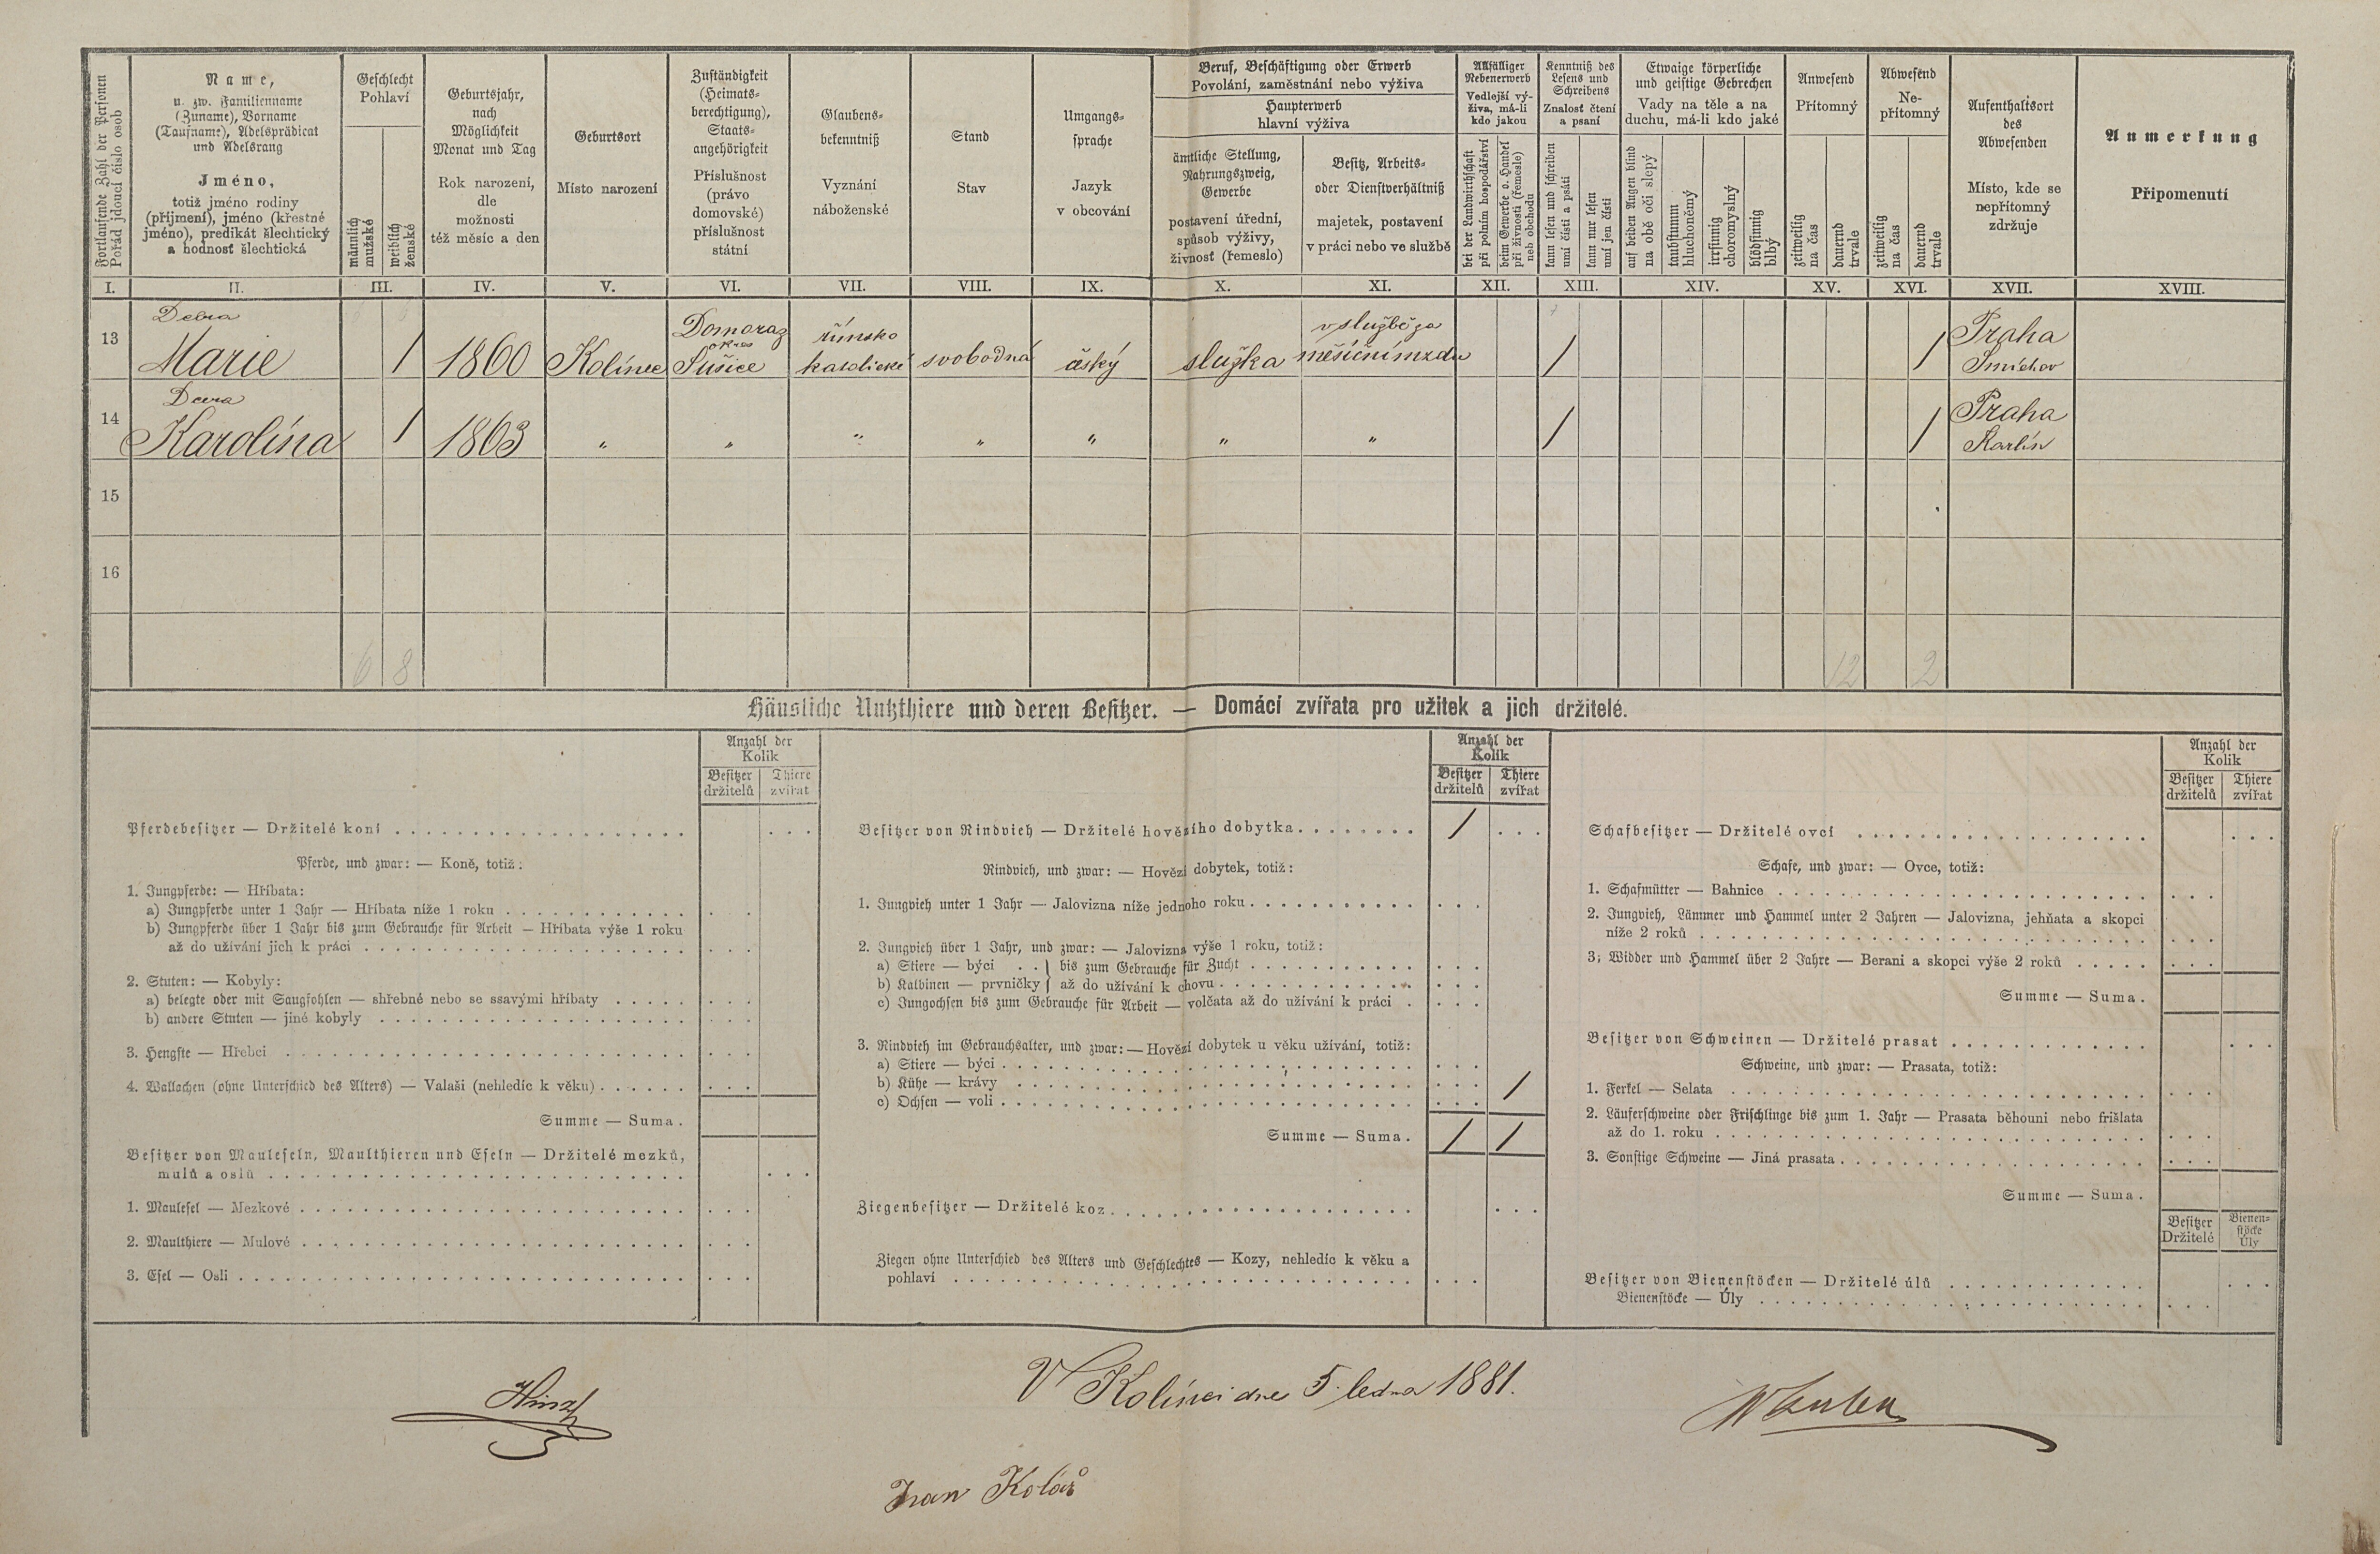 Fortlaufende Zahl der Personen
Pořád jdoucí číslo osob
Name,
u. zw. Familienname
(Zuname), Vorname
(Taufname), Adelsprädicat
und Adelsrang
Jméno,
totiž jméno rodiny
(příjmení), jméno (křestné
jméno), predikát šlechtický
a hodnosť šlechtická
Geschlecht
Pohlaví
männlich
mužské
weiblich
ženské
Geburtsjahr,
nach
Möglichkeit
Monat und Tag
Rok narození,
dle
možnosti
též měsíc a den
Geburtsort
Místo narození
Zuständigkeit
(Heimats-
berechtigung),
Staats-
angehörigkeit
Příslušnost
(právo
domovské)
příslušnost
státní
Glaubens-
bekenntniß
Vyznání
náboženské
Stand
Stav
Umgangs-
sprache
Jazyk
v obcování
Beruf, Beschäftigung oder Erwerb
Povolání, zaměstnání nebo výživa
Haupterwerb
hlavní výživa
ämtliche Stellung,
Nahrungszweig,
Gewerbe
postavení úřední,
spůsob výživy,
živnosť (řemeslo)
Besitz, Arbeits-
oder Dienstverhältniß
majetek, postavení
v práci nebo ve službě
Allfälliger
Nebenerwerb
Vedlejší vý-
živa, má-li
kdo jakou
bei der Landwirthschaft
při polním hospodářství
beim Gewerbe o. Handel
při živnosti (řemesle)
neb obchodu
Kenntniß des
Lesens und
Schreibens
Znalosť čtení
a psaní
kann lesen und schreiben
umí čísti a psáti
kann nur lesen
umí jen čísti
Etwaige körperliche
und geistige Gebrechen
Vady na těle a na
duchu, má-li kdo jaké
auf beiden Augen blind
na obě oči slepý
taubstumm
hluchoněmý
irrsinnig
choromyslný
blödsinnig
blbý
Anwesend
Přítomný
zeitweilig
na čas
dauernd
trvale
Abwesend
Ne-
přítomný
zeitweilig
na čas
dauernd
trvale
Aufenthaltsort
des
Abwesenden
Místo, kde se
nepřítomný
zdržuje
Anmerkung
Připomenutí
I. II. III. IV. V. VI. VII. VIII. IX. X. XI. XII. XIII. XIV. XV. XVI. XVII. XVIII.
13 Dcera Marie 1 1860 Kolínec Domoraz okres Sušice římsko katolické svobodná český služka v službě za měsíční mzdu 1 1 Praha Smíchov
14 Dcera Karolína 1 1863 " " " " " " " 1 1 Praha Karlín
15
16
6 8 12 2
Häusliche Nutzthiere und deren Besitzer. — Domácí zvířata pro užitek a jich držitelé.
Anzahl der
Kolik
Besitzer
držitelů
Thiere
zvířat
Pferdebesitzer — Držitelé koní
Pferde, und zwar: — Koně, totiž:
1. Jungpferde: — Hříbata:
a) Jungpferde unter 1 Jahr — Hříbata níže 1 roku
b) Jungpferde über 1 Jahr bis zum Gebrauche für Arbeit — Hříbata výše 1 roku
až do užívání jich k práci
2. Stuten: — Kobyly:
a) belegte oder mit Saugfohlen — shřebné nebo se ssavými hříbaty
b) andere Stuten — jiné kobyly
3. Hengste — Hřebci
4. Wallachen (ohne Unterschied des Alters) — Valaši (nehledíc k věku)
Summe — Suma.
Besitzer von Mauleseln, Maulthieren und Eseln — Držitelé mezků,
mulů a oslů
1. Maulesel — Mezkové
2. Maulthiere — Mulové
3. Esel — Osli
Anzahl der
Kolik
Besitzer
držitelů
Thiere
zvířat
Besitzer von Rindvieh — Držitelé hovězího dobytka 1
Rindvieh, und zwar: — Hovězí dobytek, totiž:
1. Jungvieh unter 1 Jahr — Jalovizna níže jednoho roku
2. Jungvieh über 1 Jahr, und zwar: — Jalovizna výše 1 roku, totiž:
a) Stiere — býci . . } bis zum Gebrauche für Zucht
b) Kalbinen — prvničky } až do užívání k chovu
c) Jungochsen bis zum Gebrauche für Arbeit — volčata až do užívání k práci
3. Rindvieh im Gebrauchsalter, und zwar: — Hovězí dobytek u věku užívání, totiž:
a) Stiere — býci
b) Kühe — krávy 1
c) Ochsen — voli
Summe — Suma. 1 1
Ziegenbesitzer — Držitelé koz
Ziegen ohne Unterschied des Alters und Geschlechtes — Kozy, nehledíc k věku a
pohlaví
Anzahl der
Kolik
Besitzer
držitelů
Thiere
zvířat
Schafbesitzer — Držitelé ovcí
Schafe, und zwar: — Ovce, totiž:
1. Schafmütter — Bahnice
2. Jungvieh, Lämmer und Hammel unter 2 Jahren — Jalovizna, jehňata a skopci
níže 2 roků
3. Widder und Hammel über 2 Jahre — Berani a skopci výše 2 roků
Summe — Suma.
Besitzer von Schweinen — Držitelé prasat
Schweine, und zwar: — Prasata, totiž:
1. Ferkel — Selata
2. Läuferschweine oder Frischlinge bis zum 1. Jahr — Prasata běhouni nebo frišlata
až do 1. roku
3. Sonstige Schweine — Jiná prasata
Summe — Suma.
Besitzer
Držitelé
Bienen-
stöcke
Úly
Besitzer von Bienenstöcken — Držitelé úlů
Bienenstöcke — Úly
V Kolínci dne 5. ledna 1881.
Kolář